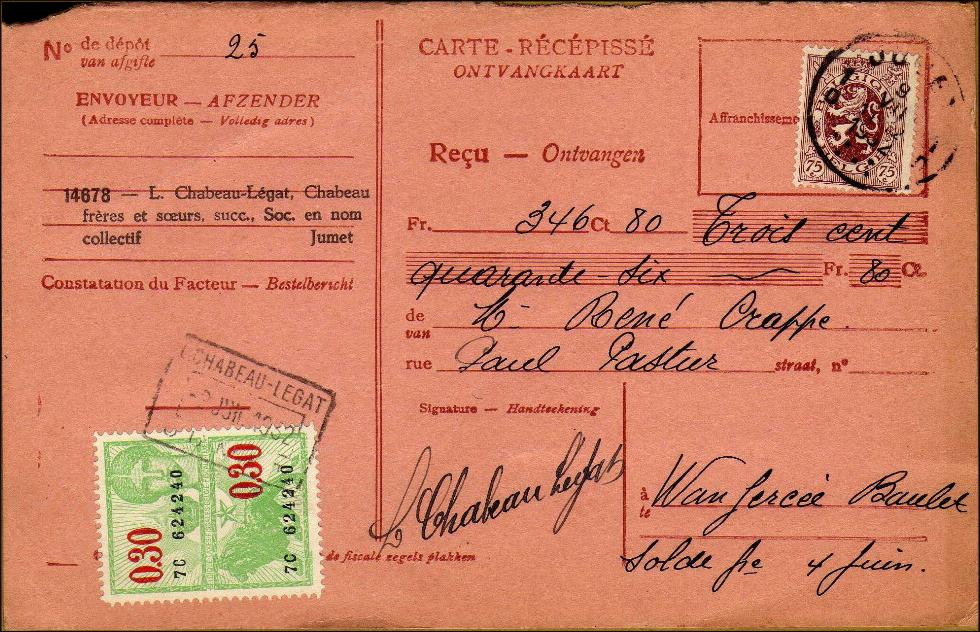 No de dépôt 25
van afgifte
ENVOYEUR — AFZENDER
(Adresse complète — Volledig adres)
14678 — L. Chabeau-Légat, Chabeau
frères et sœurs, succ., Soc. en nom
collectif Jumet
Constatation du Facteur — Bestelbericht
L. CHABEAU-LEGAT
JUIL 1932
0.30 7C 624240
0.30 7C 624240
de fiscale zegels plakken
CARTE-RÉCÉPISSÉ
ONTVANGKAART
Affranchisseme
BELGIQUE
BELGIË
75 75
JUMET
Reçu — Ontvangen
Fr. 346 Ct 80 Trois cent
quarante-six Fr. 80 Ct.
de Mr René Crappe.
van
rue Paul Pastur straat, no
Signature — Handteekening
L Chabeau Legat
à Wanfercée Baulet
te
Solde fre 4 juin.